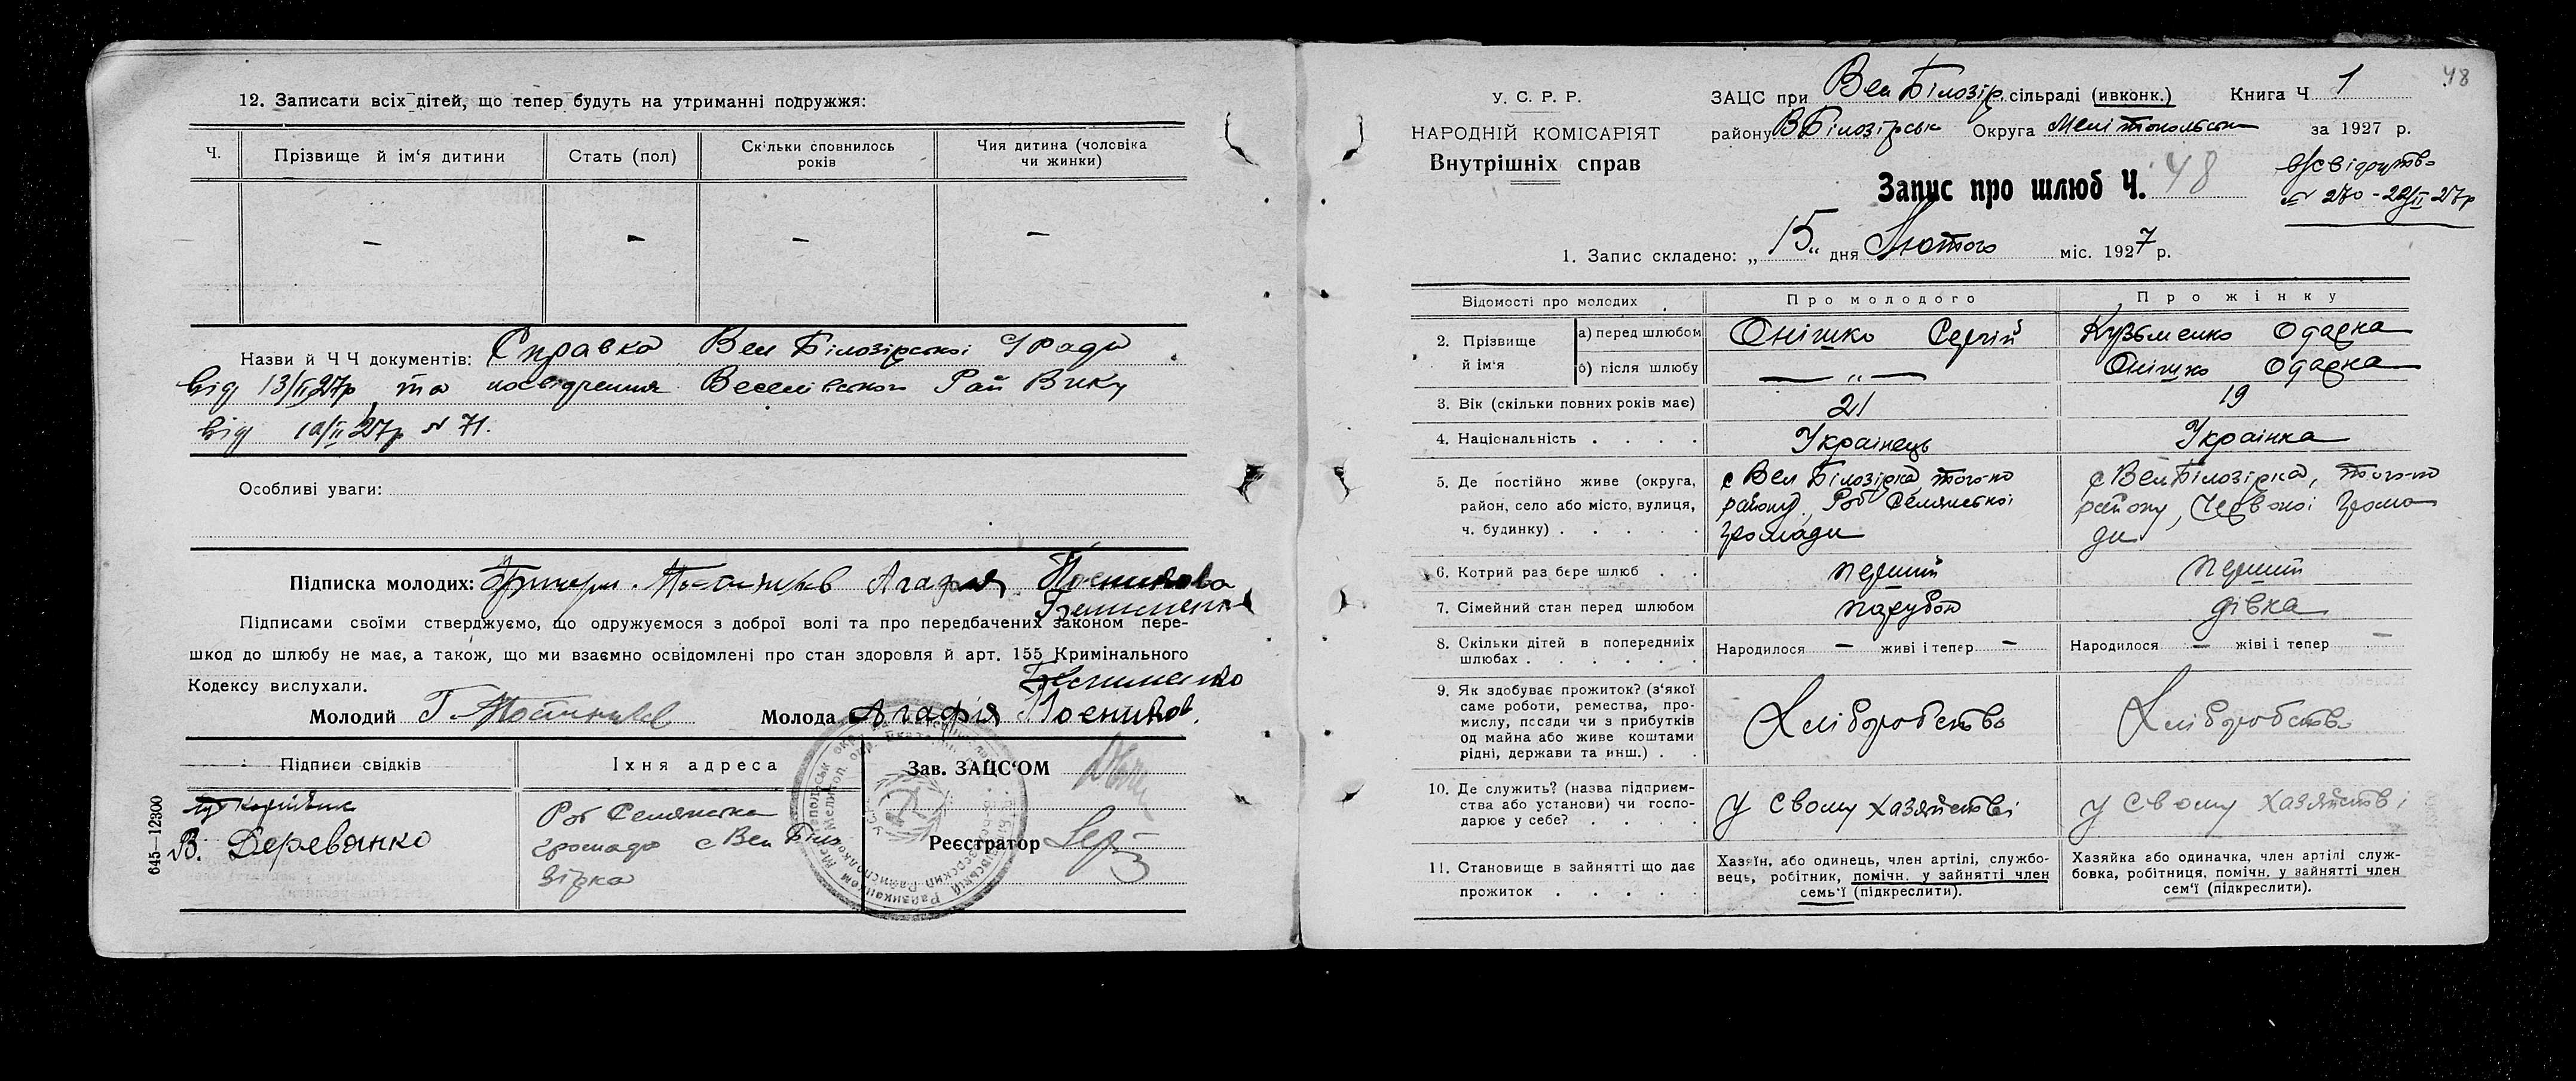 12. Записати всіх дітей, що тепер будуть на утриманні подружжя:
Ч.
Прізвище й ім'я дитини
Стать (пол)
Скільки сповнилось
років
Чия дитина (чоловіка
чи жинки)
— — — —
Назви й Ч Ч документів: Справка Вел Білозірської С Ради
від 13/II 27р, та посвідчення Веселівского Рай Вику
від 10/II 27р № 71.
Особливі уваги:
Підписка молодих: Агафія
Підписами своїми стверджуємо, що одружуємося з доброї волі та про передбачених законом пере-
шкод до шлюбу не має, а також, що ми взаємно освідомлені про стан здоровля й арт. 155 Кримінального
Кодексу вислухали.
Молодий Г.
Молода Агафія
Підписи свідків
Їхня адреса
Зав. ЗАЦС'ОМ
В. Деревянко
Роб Селянська
громада с Вел Біло
зірка
Реєстратор
645—12300
У. С. Р. Р.
НАРОДНІЙ КОМІСАРІЯТ
Внутрішніх справ
ЗАЦС при Вел Білозір. сільраді (ивконк.) Книга Ч 1
48
району В Білозірськ Округа Мелітопольська за 1927 р.
Запис про шлюб Ч. 48
№ 270 - 22/II-27р
1. Запис складено: „15“ дня Лютого міс. 1927 р.
Відомості про молодих
Про молодого
Про жінку
2. Прізвище
й ім'я
а) перед шлюбом
Онішко Сергій
Кузьменко Одарка
б) після шлюбу
— „ —
Онішко Одарка
3. Вік (скільки повних років має)
21
19
4. Національність
Украінець
Украінка
5. Де постійно живе (округа,
район, село або місто, вулиця,
ч. будинку)
с Вел Білозірка того-ж
району, Роб Селянської
громади
с Вел Білозірка, того-ж
району, Червоної Грома
ди
6. Котрий раз бере шлюб
перший
перший
7. Сімейний стан перед шлюбом
парубок
дівка
8. Скільки дітей в попередниіх
шлюбах
Народилося — живі і тепер —
Народилося — жіві і тепер —
9. Як здобуває прожиток? (з'якої
саме роботи, ремества, про-
мислу, посади чи з прибутків
од майна або живе коштами
рідні, держави та инш.)
Хліборобство
Хліборобство
10. Де служить? (назва підприєм-
ства або установи) чи госпо-
дарює у себе?
у своему хазяйстві
у своему хазяйстві
11. Становище в зайнятті що дає
прожиток
Хазяїн, або одинець, член артілі, службо-
вець, робітник, помічн. у зайнятті член
семь'ї (підкреслити).
Хазяйка або одиначка, член артілі служ-
бовка, робітниця, помічн, у зайнятті член
сем'ї (підкреслити).